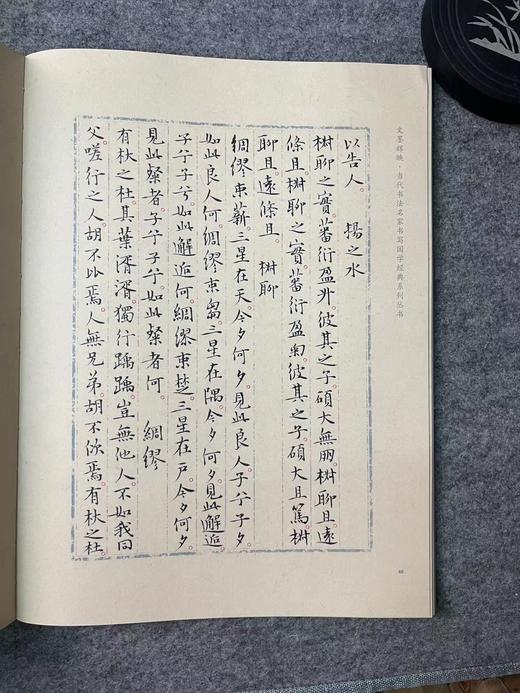 文墨辉映·当代书法名家书写国学经典系列丛书
以告人。 揚之水
樹聊之實。蕃衍盈升。彼其之子。碩大無朋。樹聊且。遠
條且。樹聊之實。蕃衍盈匊。彼其之子。碩大且篤。樹
聊且。遠條且。 樹聊
綢繆束薪。三星在天。今夕何夕。見此良人。子兮子兮。
如此良人何。綢繆束芻。三星在隅。今夕何夕。見此邂逅。
子兮子兮。如此邂逅何。綢繆束楚。三星在戶。今夕何夕。
見此粲者。子兮子兮。如此粲者何。 綢繆
有杕之杜。其葉湑湑。獨行踽踽。豈無他人。不如我同
父。嗟行之人。胡不比焉。人無兄弟。胡不佽焉。有杕之杜。